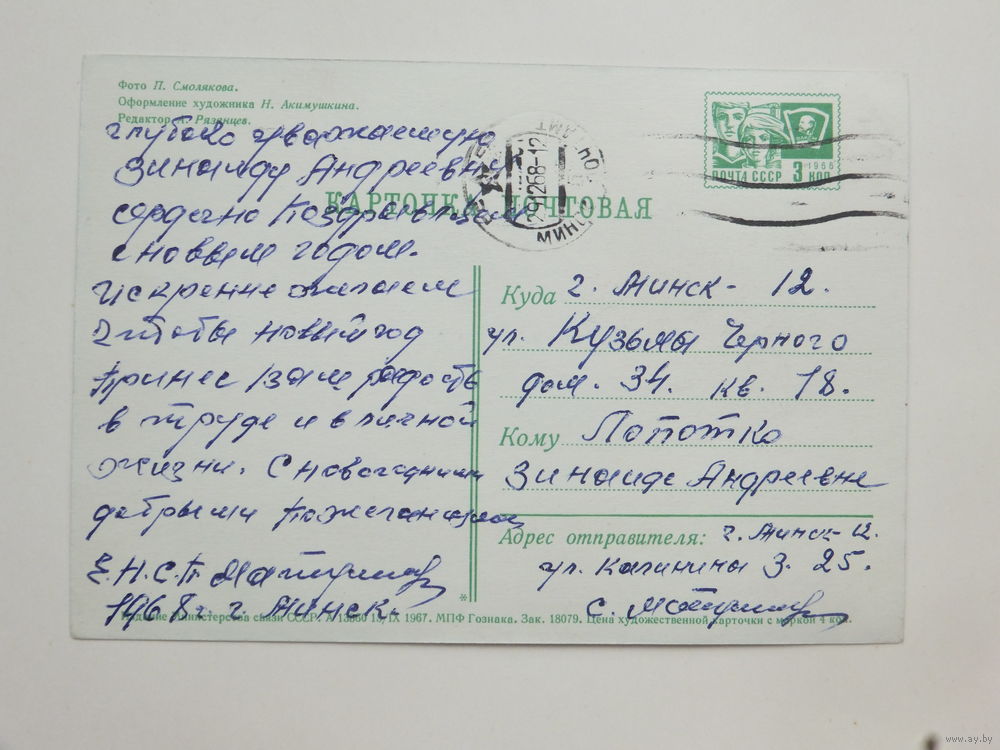 Фото П. Смолякова.
Оформление художника Н. Акимушкина.
Редактор А. Рязанцев.
глубоко уважаемую
Зинаиду Андреевну
сердечно Поздравляем
с новым годом.
Искренне желаем
чтобы новый год
Принес вам радость
в труде и в личной
жизни. С новогодними
добрыми Пожеланиями
Е.Н.С.П Матушев
1968 г. г. Минск.
КАРТОЧКА ПОЧТОВАЯ
29.12.68-12
МИНСК
ПОЧТА СССР 3 КОП
1966
Куда г. Минск- 12.
ул. Кузьмы Черного
дом. 34. кв. 18.
Кому Лопотко
Зинаиде Андреевне
Адрес отправителя: г. Минск-12.
ул. Калинина 3. 25.
Издание Министерства связи СССР. А 13860 18/IX 1967. МПФ Гознака. Зак. 18079. Цена художественной карточки с маркой 4 коп.
www.ay.by